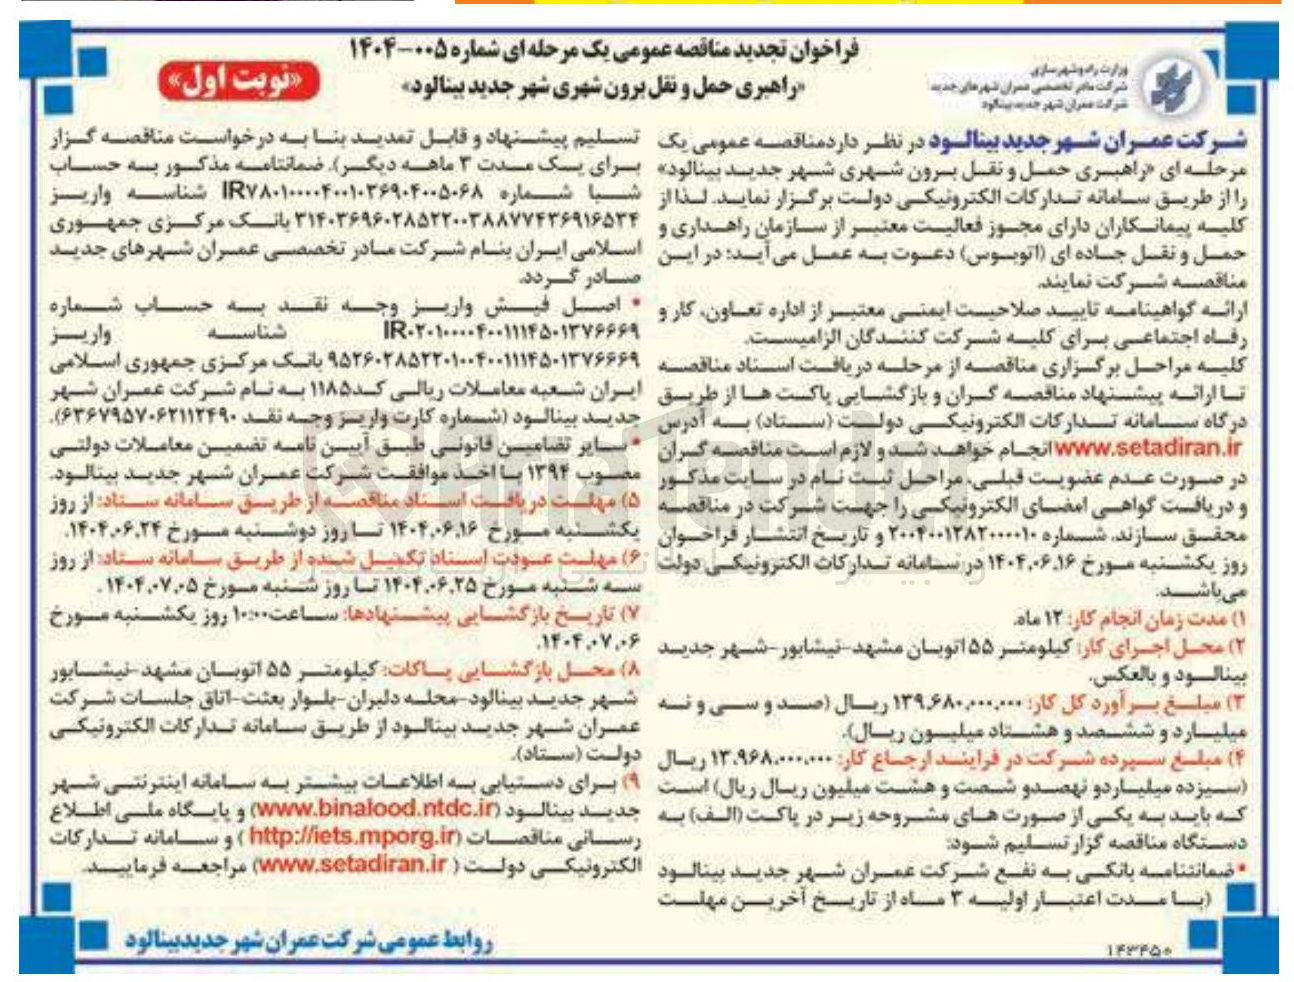 فراخوان تجدید مناقصه عمومی یک مرحله ای شماره ۰۰۵-۱۴۰۴
«راهبری حمل و نقل برون شهری شهر جدید بینالود»
«نوبت اول»
وزارت راه و شهرسازی
شرکت مادر تخصصی عمران شهرهای جدید
شرکت عمران شهر جدید بینالود
شرکت عمران شهر جدید بینالود در نظر دارد مناقصه عمومی یک
مرحله ای «راهبری حمل و نقل برون شهری شهر جدید بینالود»
را از طریق سامانه تدارکات الکترونیکی دولت برگزار نماید. لذا از
کلیه پیمانکاران دارای مجوز فعالیت معتبر از سازمان راهداری و
حمل و نقل جاده ای (اتوبوس) دعوت به عمل می‌آید؛ در این
مناقصه شرکت نمایند.
ارائه گواهینامه تایید صلاحیت ایمنی معتبر از اداره تعاون، کار و
رفاه اجتماعی برای کلیه شرکت کنندگان الزامیست.
کلیه مراحل برگزاری مناقصه از مرحله دریافت اسناد مناقصه
تا ارائه پیشنهاد مناقصه گران و بازگشایی پاکت ها از طریق
درگاه سامانه تدارکات الکترونیکی دولت (ستاد) به آدرس
www.setadiran.ir انجام خواهد شد و لازم است مناقصه گران
در صورت عدم عضویت قبلی، مراحل ثبت نام در سایت مذکور
و دریافت گواهی امضای الکترونیکی را جهت شرکت در مناقصه
محقق سازند. شماره ۲۰۰۴۰۰۱۲۸۲۰۰۰۰۱۰ و تاریخ انتشار فراخوان
روز یکشنبه مورخ ۱۴۰۴,۰۶,۱۶ در سامانه تدارکات الکترونیکی دولت
می‌باشد.
۱) مدت زمان انجام کار: ۱۲ ماه.
۲) محل اجرای کار: کیلومتر ۵۵ اتوبان مشهد-نیشابور-شهر جدید
بینالود و بالعکس.
۳) مبلغ برآورد کل کار: ۱۳۹,۶۸۰,۰۰۰,۰۰۰ ریال (صد و سی و نه
میلیارد و ششصد و هشتاد میلیون ریال).
۴) مبلغ سپرده شرکت در فرایند ارجاع کار: ۱۳,۹۶۸,۰۰۰,۰۰۰ ریال
(سیزده میلیارد و نهصد و شصت و هشت میلیون ریال ریال) است
که باید به یکی از صورت های مشروحه زیر در پاکت (الف) به
دستگاه مناقصه گزار تسلیم شود:
• ضمانتنامه بانکی به نفع شرکت عمران شهر جدید بینالود
(با مدت اعتبار اولیه ۳ ماه از تاریخ آخرین مهلت
تسلیم پیشنهاد و قابل تمدید بنا به درخواست مناقصه گزار
برای یک مدت ۳ ماهه دیگر). ضمانتنامه مذکور به حساب
شبا شماره IR۷۸۰۱۰۰۰۰۴۰۰۱۰۳۶۹۰۴۰۰۵۰۶۸ شناسه واریز
۳۱۴۰۳۶۹۶۰۲۸۵۲۲۰۰۳۸۸۷۷۴۳۶۹۱۶۵۳۴ بانک مرکزی جمهوری
اسلامی ایران بنام شرکت مادر تخصصی عمران شهرهای جدید
صادر گردد.
• اصل فیش واریز وجه نقد به حساب شماره
IR۰۲۰۱۰۰۰۰۴۰۰۱۱۱۴۵۰۱۳۷۶۶۶۹ شناسه واریز
۹۵۲۶۰۲۸۵۲۲۰۱۰۰۴۰۰۱۱۱۴۵۰۱۳۷۶۶۶۹ بانک مرکزی جمهوری اسلامی
ایران شعبه معاملات ریالی کد ۱۱۸۵ به نام شرکت عمران شهر
جدید بینالود (شماره کارت واریز وجه نقد ۶۳۶۷۹۵۷۰۶۲۱۱۲۴۹۰).
• سایر تضامین قانونی طبق آیین نامه تضمین معاملات دولتی
مصوب ۱۳۹۴ با اخذ موافقت شرکت عمران شهر جدید بینالود.
۵) مهلت دریافت اسناد مناقصه از طریق سامانه ستاد: از روز
یکشنبه مورخ ۱۴۰۴,۰۶,۱۶ تا روز دوشنبه مورخ ۱۴۰۴,۰۶,۲۴.
۶) مهلت عودت اسناد تکمیل شده از طریق سامانه ستاد: از روز
سه شنبه مورخ ۱۴۰۴,۰۶,۲۵ تا روز شنبه مورخ ۱۴۰۴,۰۷,۰۵ .
۷) تاریخ بازگشایی پیشنهادها: ساعت ۱۰:۰۰ روز یکشنبه مورخ
۱۴۰۴,۰۷,۰۶.
۸) محل بازگشایی پاکات: کیلومتر ۵۵ اتوبان مشهد-نیشابور
شهر جدید بینالود-محله دلیران-بلوار بعثت-اتاق جلسات شرکت
عمران شهر جدید بینالود از طریق سامانه تدارکات الکترونیکی
دولت (ستاد).
۹) برای دستیابی به اطلاعات بیشتر به سامانه اینترنتی شهر
جدید بینالود (www.binalood.ntdc.ir) و پایگاه ملی اطلاع
رسانی مناقصات (http://iets.mporg.ir ) و سامانه تدارکات
الکترونیکی دولت ( www.setadiran.ir) مراجعه فرمایید.
روابط عمومی شرکت عمران شهر جدید بینالود
۱۴۳۴۵۰